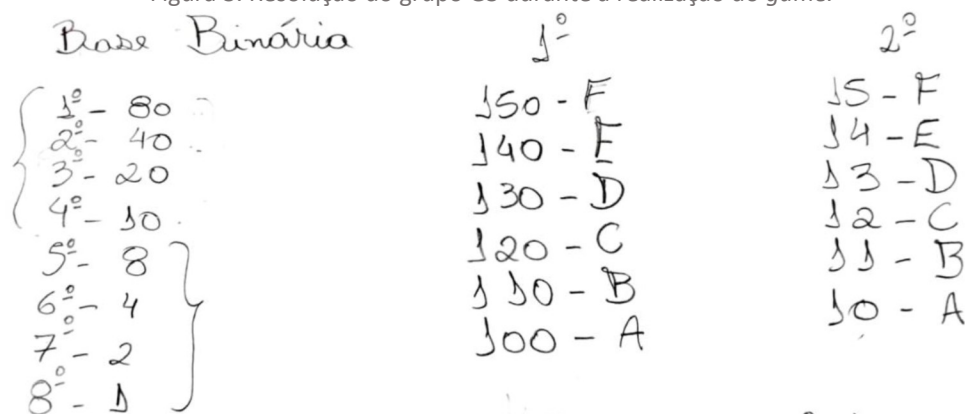 Figura 3: Resolução do grupo G3 durante a realização do game.
Base Binária
1º - 80
2º - 40
3º - 20
4º - 10
5º - 8
6º - 4
7º - 2
8º - 1
1º
150 - F
140 - E
130 - D
120 - C
110 - B
100 - A
2º
15 - F
14 - E
13 - D
12 - C
11 - B
10 - A